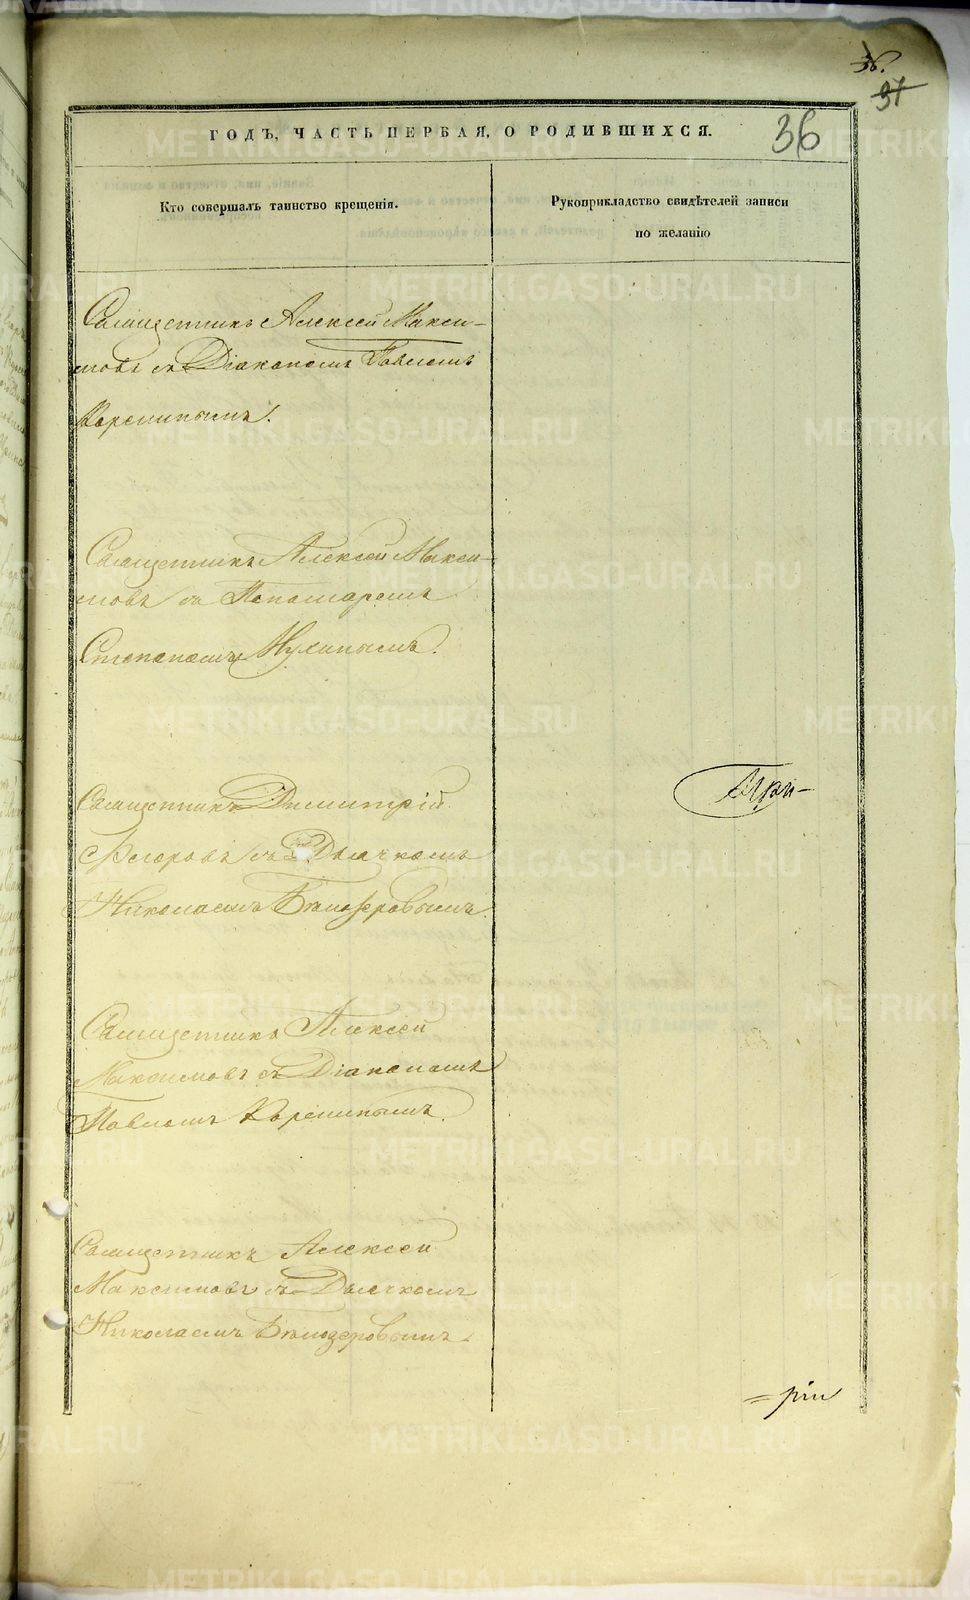 36.
37
36
ГОДЪ, ЧАСТЬ ПЕРВАЯ, О РОДИВШИХСЯ.
Кто совершалъ таинство крещенія.
Рукоприкладство свидѣтелей записи
по желанію
Священникъ Алексей Макси-
мовъ съ Діакономъ Павломъ
Корепинымъ.
Священникъ Алексей Макси-
мовъ съ Пономаремъ
Степаномъ Мухинымъ.
Священникъ Димитрій
Ѳедоровъ съ Дьячкомъ
Николаемъ Бѣлозеровымъ.
Священникъ Алексей
Максимовъ съ Діакономъ
Павломъ Корепинымъ.
Священникъ Алексей
Максимовъ съ Дьячкомъ
Николаемъ Бѣлозеровымъ.
METRIKI.GASO-URAL.RU